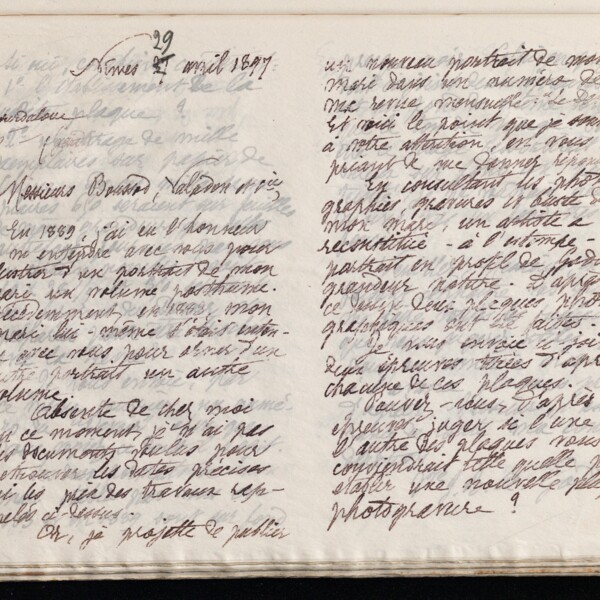 29
Nîmes avril 1897
Messieurs Boussod Valadon et cie,
En 1889 j'ai eu l'honneur
m'entendre avec vous pour
d'un portrait de mon
mari un volume posthume.
Précédemment, en 1883, mon
mari lui-même s'était enten-
avec vous pour orner d'un
autre portrait un autre
volume.
Absente de chez moi
en ce moment, je n'ai pas
les documents voulus pour
retrouver les dates précises
et les prix des travaux rap-
pelés ci-dessus.
Or, je projette de publier
un nouveau portrait de mon
mari dans un numéro de
ma revue mensuelle: Le
Et voici le point que je
à votre attention, en vous
priant de me donner
En consultant les photo
graphies, gravures et buste de
mon mari, un artiste a
reconstitué - à l'estompe -
portrait en profil de
grandeur nature. D'après
ce deux plaques photo
graphiques ont été faites.
Je vous envoie ci-joi
deux épreuves tirées d'après
chacune de ces plaques.
Pouvez-vous, d'après
épreuves, juger si l'une
l'autre des plaques vous
conviendrait telle quelle
établir une nouvelle
photogravure ?